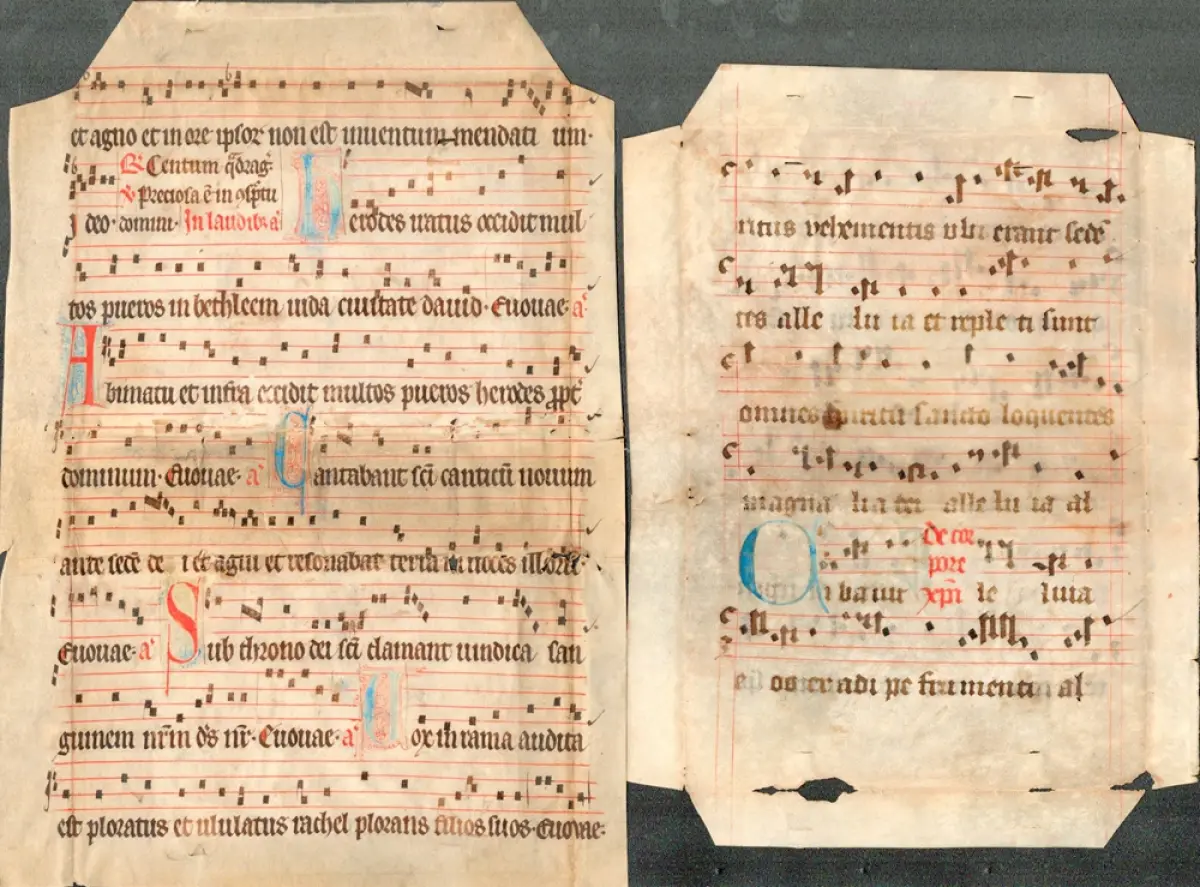 et agno et in ore ipsor non est inuentum mendati um·
R Centum qdrag·
V Preciosa ē in ɔsptu
deo· domini· In laudib; aᵃ Herodes iratus occidit mul
tos pueros in bethleem iuda ciuitate dauid· Euouae· aᵃ
A bimatu et infra occidit multos pueros herodes ꝓpt
dominum· Euouae· aᵃ Cantabant sci canticū nouum
ante sedē de i et agni et resonabat terra in uoces illorū·
Euouae· aᵃ Sub throno dei sci clamant uindica san
guinem nrm ds nr· Euouae· aᵃ Uox in rama audita
est ploratus et ululatus rachel plorans filios suos· Euouae·
ritus vehementis vbi erant sedē
tes alle lu ia et reple ti sunt
omnes spiritu sancto loquentes
magna lia dei alle lu ia al
De cor
pore
xpi
le luia
os te radi pe frumenti al